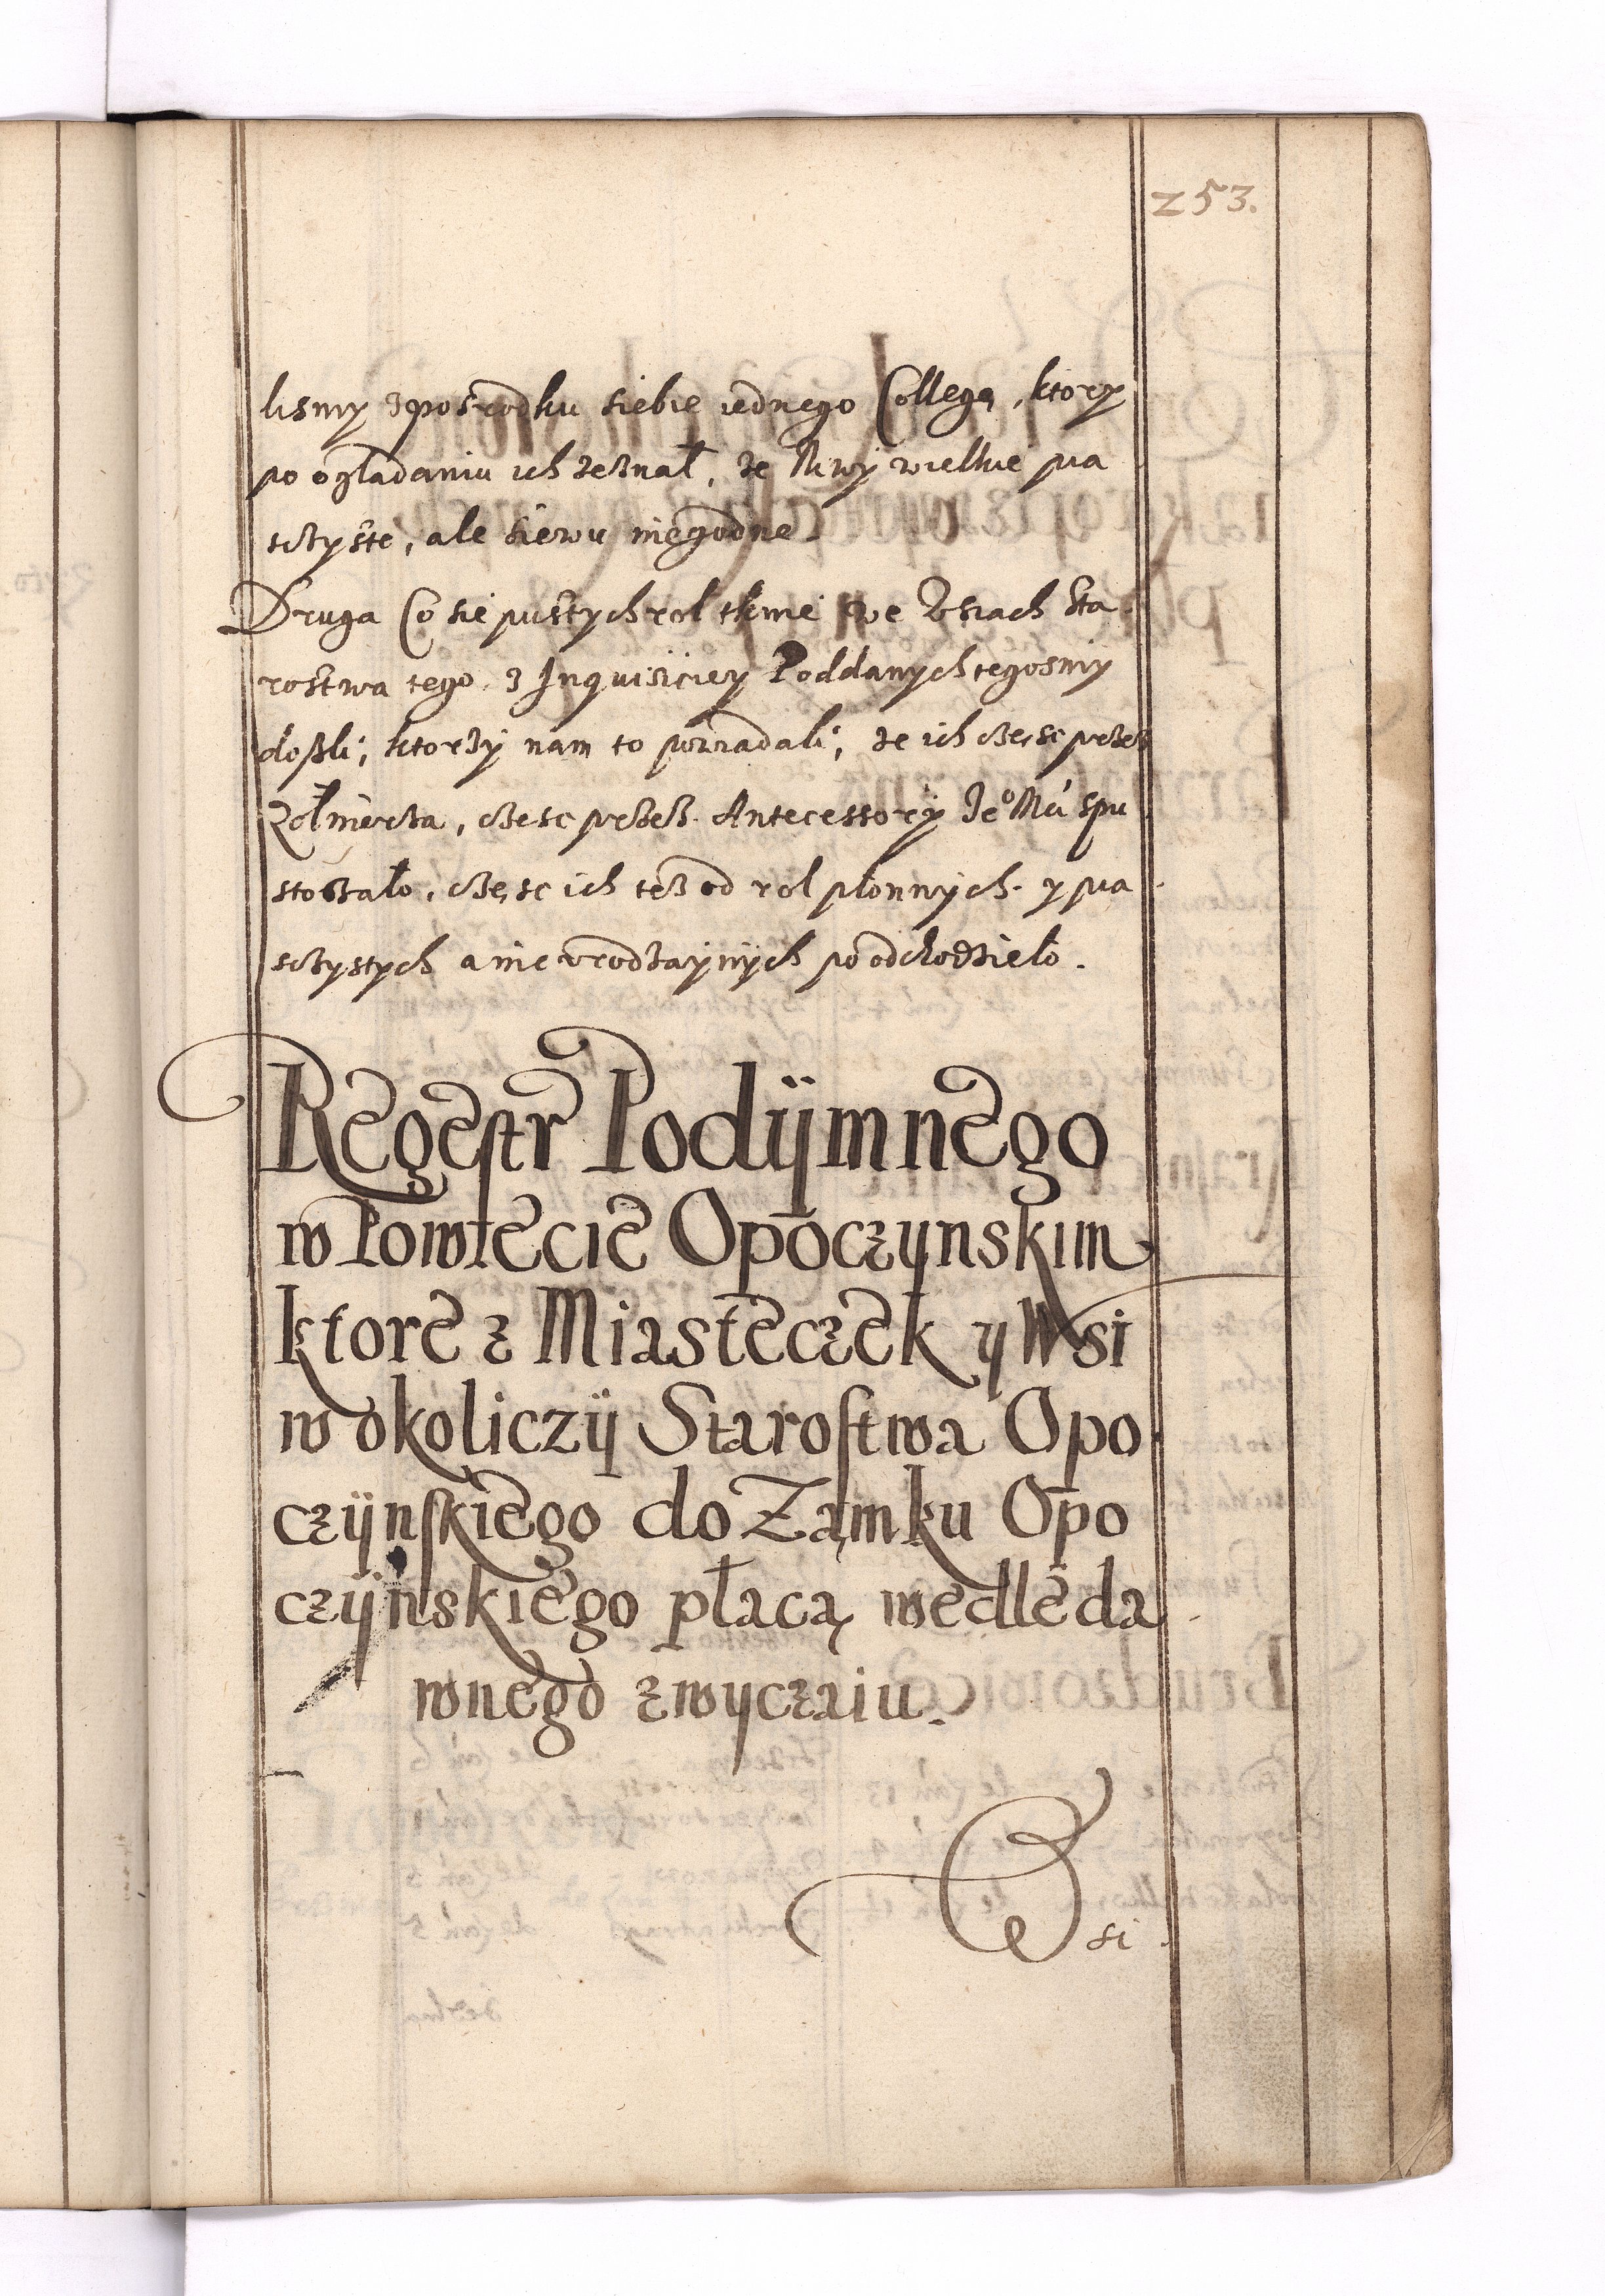 253.
lismy zposrodku siebie iednego Collegę, ktory
po oglądaniu ich zeznał, ze Niwy wielkie pia
sczyste, ale siewu niegodne.
Druga Co sie pustych rol tknie we Wsiach Sta
rostwa tego, z Inquisiciey Poddanych tegosmy
doszli; ktorzy nam to powiadali; ze ich częsc przez
Zołnierza, częsc przez Antecessory Jeº Mći spu
stoszało, częsc ich tesz od rol płonnych y pia
sczystych a nie vrodzaynych poodchodzieło.
Regestr Podÿmnego
w Powiecie Opoczynskim
ktore z Miasteczek y Wsi
w okoliczÿ Starostwa Opo
czÿnskiego do Zamku Opo
czÿnskiego płacą wedle da
wnego zwyczaiu.
Wsi